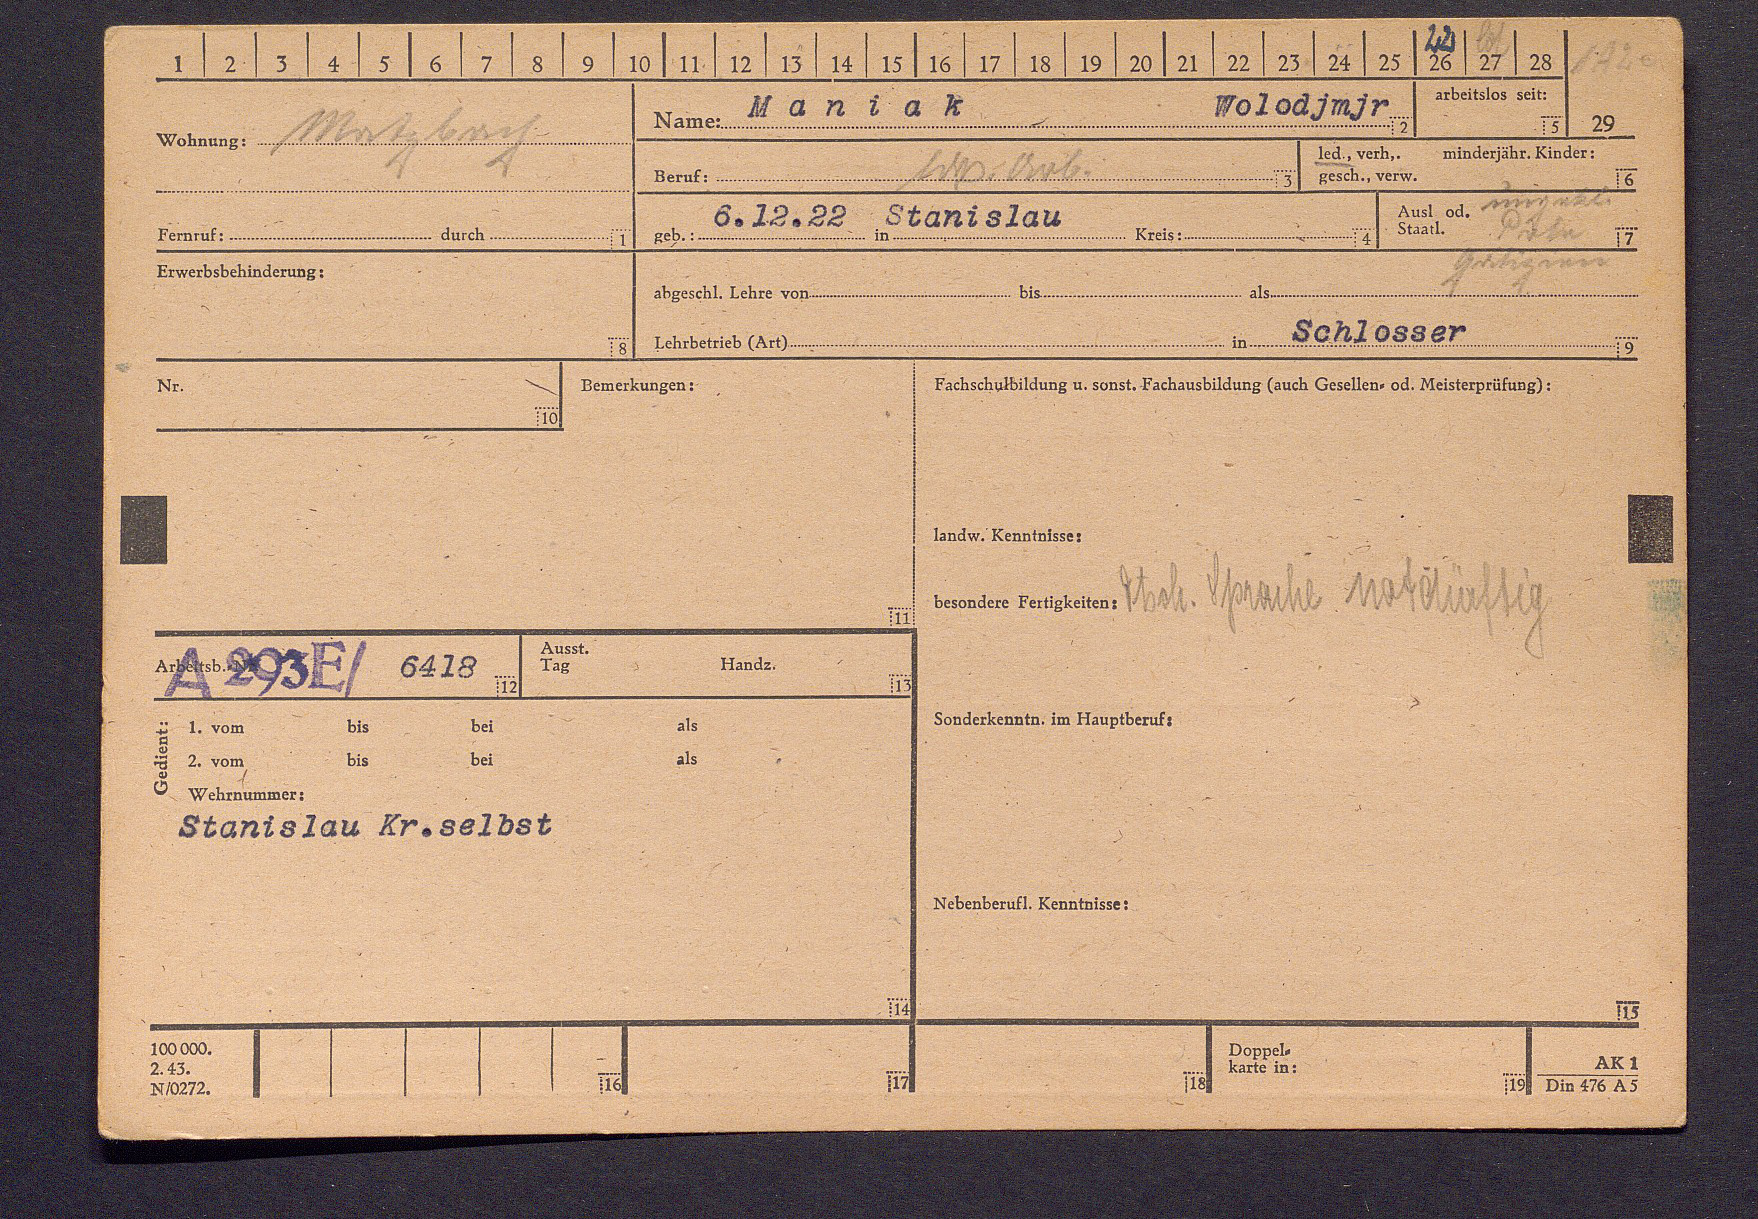 1 2 3 4 5 6 7 8 9 10 11 12 13 14 15 16 17 18 19 20 21 22 23 24 25 26 27 28
Wohnung: Matzbach
Name: Maniak Wolodjmjr 2
arbeitslos seit: 5
29
Beruf: ldw. Arb. 3
led., verh,. minderjähr. Kinder:
gesch., verw. 6
Fernruf: durch 1
6.12.22 Stanislau
geb.: in Kreis: 4
Ausl od.
Staatl. 7
Erwerbsbehinderung:
8
abgeschl. Lehre von bis als
Lehrbetrieb (Art) in Schlosser 9
Nr.
10
Bemerkungen:
11
Fachschulbildung u. sonst. Fachausbildung (auch Gesellen- od. Meisterprüfung):
landw. Kenntnisse:
besondere Fertigkeiten: dtsch. Sprache notdürftig
Arbeitsb.-Nr. A 293E/ 6418 12
Ausst.
Tag Handz. 13
Gedient:
1. vom bis bei als
2. vom bis bei als
Wehrnummer:
Stanislau Kr.selbst
14
Sonderkenntn. im Hauptberuf:
Nebenberufl. Kenntnisse:
15
100 000.
2. 43.
N/0272.
16
17
18
Doppel-
karte in:
19
AK 1
Din 476 A 5